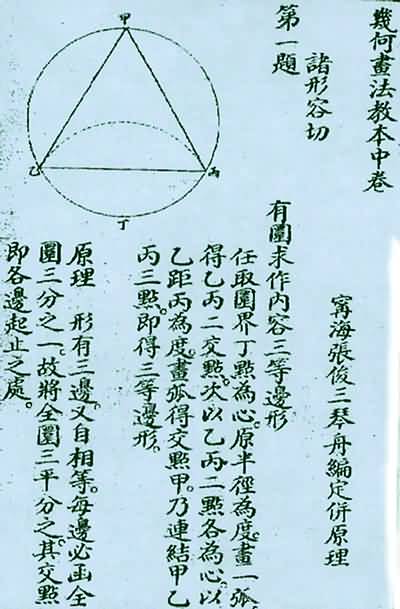 幾何畫法教本中卷
甯海張俊三琴舟編定併原理
諸形容切
第一題
有圜求作內容三等邊形
任取圜界丁點為心。原半徑為度。畫一弧
得乙丙二交點。次以乙丙二點各為心。以
乙距丙為度。畫弧得交點甲。乃連結甲乙
丙三點。即得三等邊形。
原理　形有三邊。又自相等。每邊必函全
圜三分之一。故將全圜三平分之。其交點
即各邊起止之處。
甲
乙
丙
丁